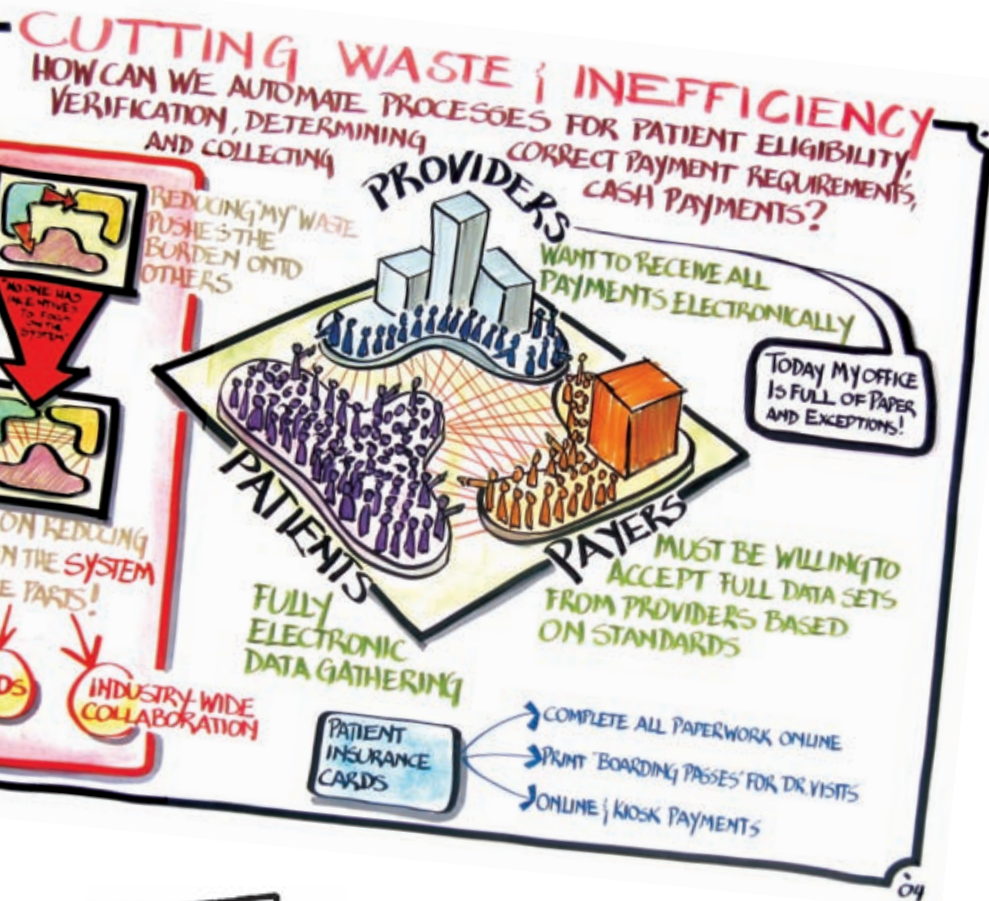 CUTTING WASTE & INEFFICIENCY
HOW CAN WE AUTOMATE PROCESSES FOR PATIENT ELIGIBILITY,
VERIFICATION, DETERMINING CORRECT PAYMENT REQUIREMENTS,
AND COLLECTING CASH PAYMENTS?
REDUCING "MY" WASTE
PUSHES THE
BURDEN ONTO
OTHERS
"NO ONE HAS
INCENTIVES
TO FOCUS
ON THE
SYSTEM"
ON REDUCING
N THE SYSTEM
E PARTS!
DS
INDUSTRY-WIDE
COLLABORATION
PROVIDERS
WANT TO RECEIVE ALL
PAYMENTS ELECTRONICALLY
TODAY MY OFFICE
IS FULL OF PAPER
AND EXCEPTIONS!
PATIENTS
PAYERS
MUST BE WILLING TO
ACCEPT FULL DATA SETS
FROM PROVIDERS BASED
ON STANDARDS
FULLY
ELECTRONIC
DATA GATHERING
PATIENT
INSURANCE
CARDS
COMPLETE ALL PAPERWORK ONLINE
PRINT "BOARDING PASSES" FOR DR. VISITS
ONLINE & KIOSK PAYMENTS
'04